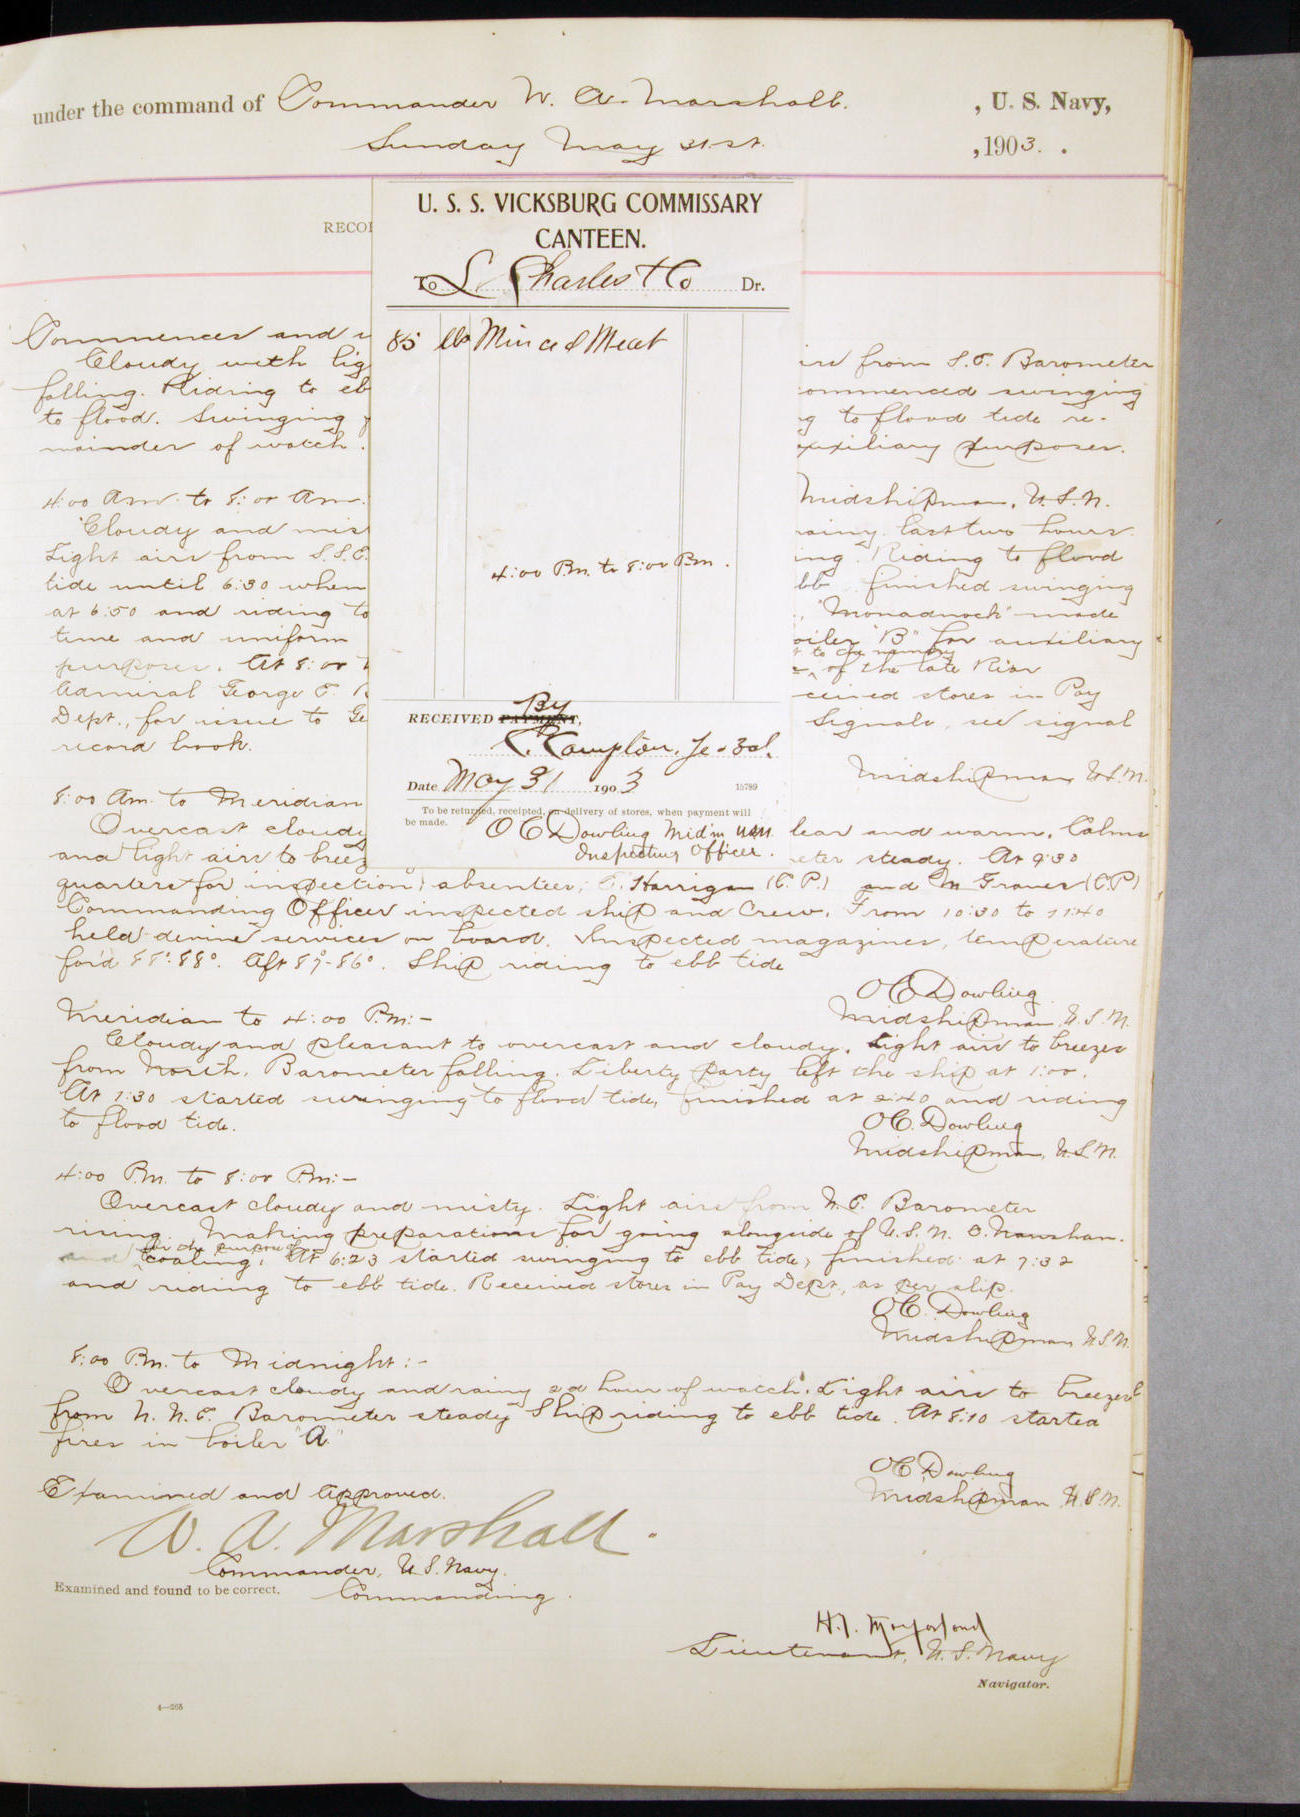 under the command of Commander W. A. Marshall. , U. S. Navy,
Sunday May 31st. , 1903.
RECO
U. S. S. VICKSBURG COMMISSARY
CANTEEN.
To L. Charles & Co Dr.
85 lbs Minced Meat
4:00 P.m. to 8:00 P.m.
By
RECEIVED PAYMENT,
Date May 31 1903 15789
To be returned, receipted, on delivery of stores, when payment will
be made.
O C Dowling Mid'n USN
Inspecting Officer.
Commences and
Cloudy with lig
airs from S.E. Barometer
falling. Riding to eb
commenced swinging
to flood. Swinging
to flood tide re-
mainder of watch.
auxiliary purposes.
4:00 Am. to 8:00 Am.
Midshipman, U.S.N.
Cloudy and mis
rainy last two hours.
Light airs from S.S.E.
ing. Riding to flood
tide until 6:30 when
bb finished swinging
at 6:50 and riding to
"Monadnock" made
time and uniform
boiler "B" for auxiliary
to the memory
purposes. At 8:00
of the late Rear
Admiral George E.
ceived stores in Pay
Dept., for issue to Ge
Signals, see signal
record book.
Midshipman U.S.N.
8:00 Am. to Meridian
Overcast cloudy
lear and warm. Calms
and light airs to breez
eter steady. At 9:30
quarters for inspection; absentees, Harrigan (C.P.) and M Graves (C.P)
Commanding Officer inspected ship and Crew. From 10:30 to 11:40
held devine services on board. Inspected magazines, temperature
for'd 88°-88°. Aft 87°-86°. Ship riding to ebb tide
O C Dowling
Midshipman, U.S.N.
Meridian to 4:00 P.m:-
Cloudy and pleasant to overcast and cloudy. Light airs to breezes
from North. Barometer falling. Liberty party left the ship at 1:00.
At 1:30 started swinging to flood tide, finished at 2:40 and riding
to flood tide.
O C. Dowling
Midshipman, U.S.N.
4:00 P.m. to 8:00 P.m:-
Overcast cloudy and misty. Light airs from N.E. Barometer
rising. Making preparations for going alongside of U.S.N. O. Nanshan.
for the purpose of
and coaling. At 6:23 started swinging to ebb tide, finished at 7:32
and riding to ebb tide. Received stores in Pay Dept., as per slip.
O C. Dowling
Midshipman, U.S.N.
8:00 P.m. to Midnight:-
Overcast cloudy and rainy 2d hour of watch. Light airs to breezes
from N. N. E. Barometer steady Ship riding to ebb tide. At 8:10 started
fires in boiler "A"
O C Dowling
Midshipman U.S.N.
Examined and approved.
W. A. Marshall.
Commander, U.S. Navy.
Commanding.
Examined and found to be correct.
Lieutenant, U.S. Navy
Navigator.
4—265